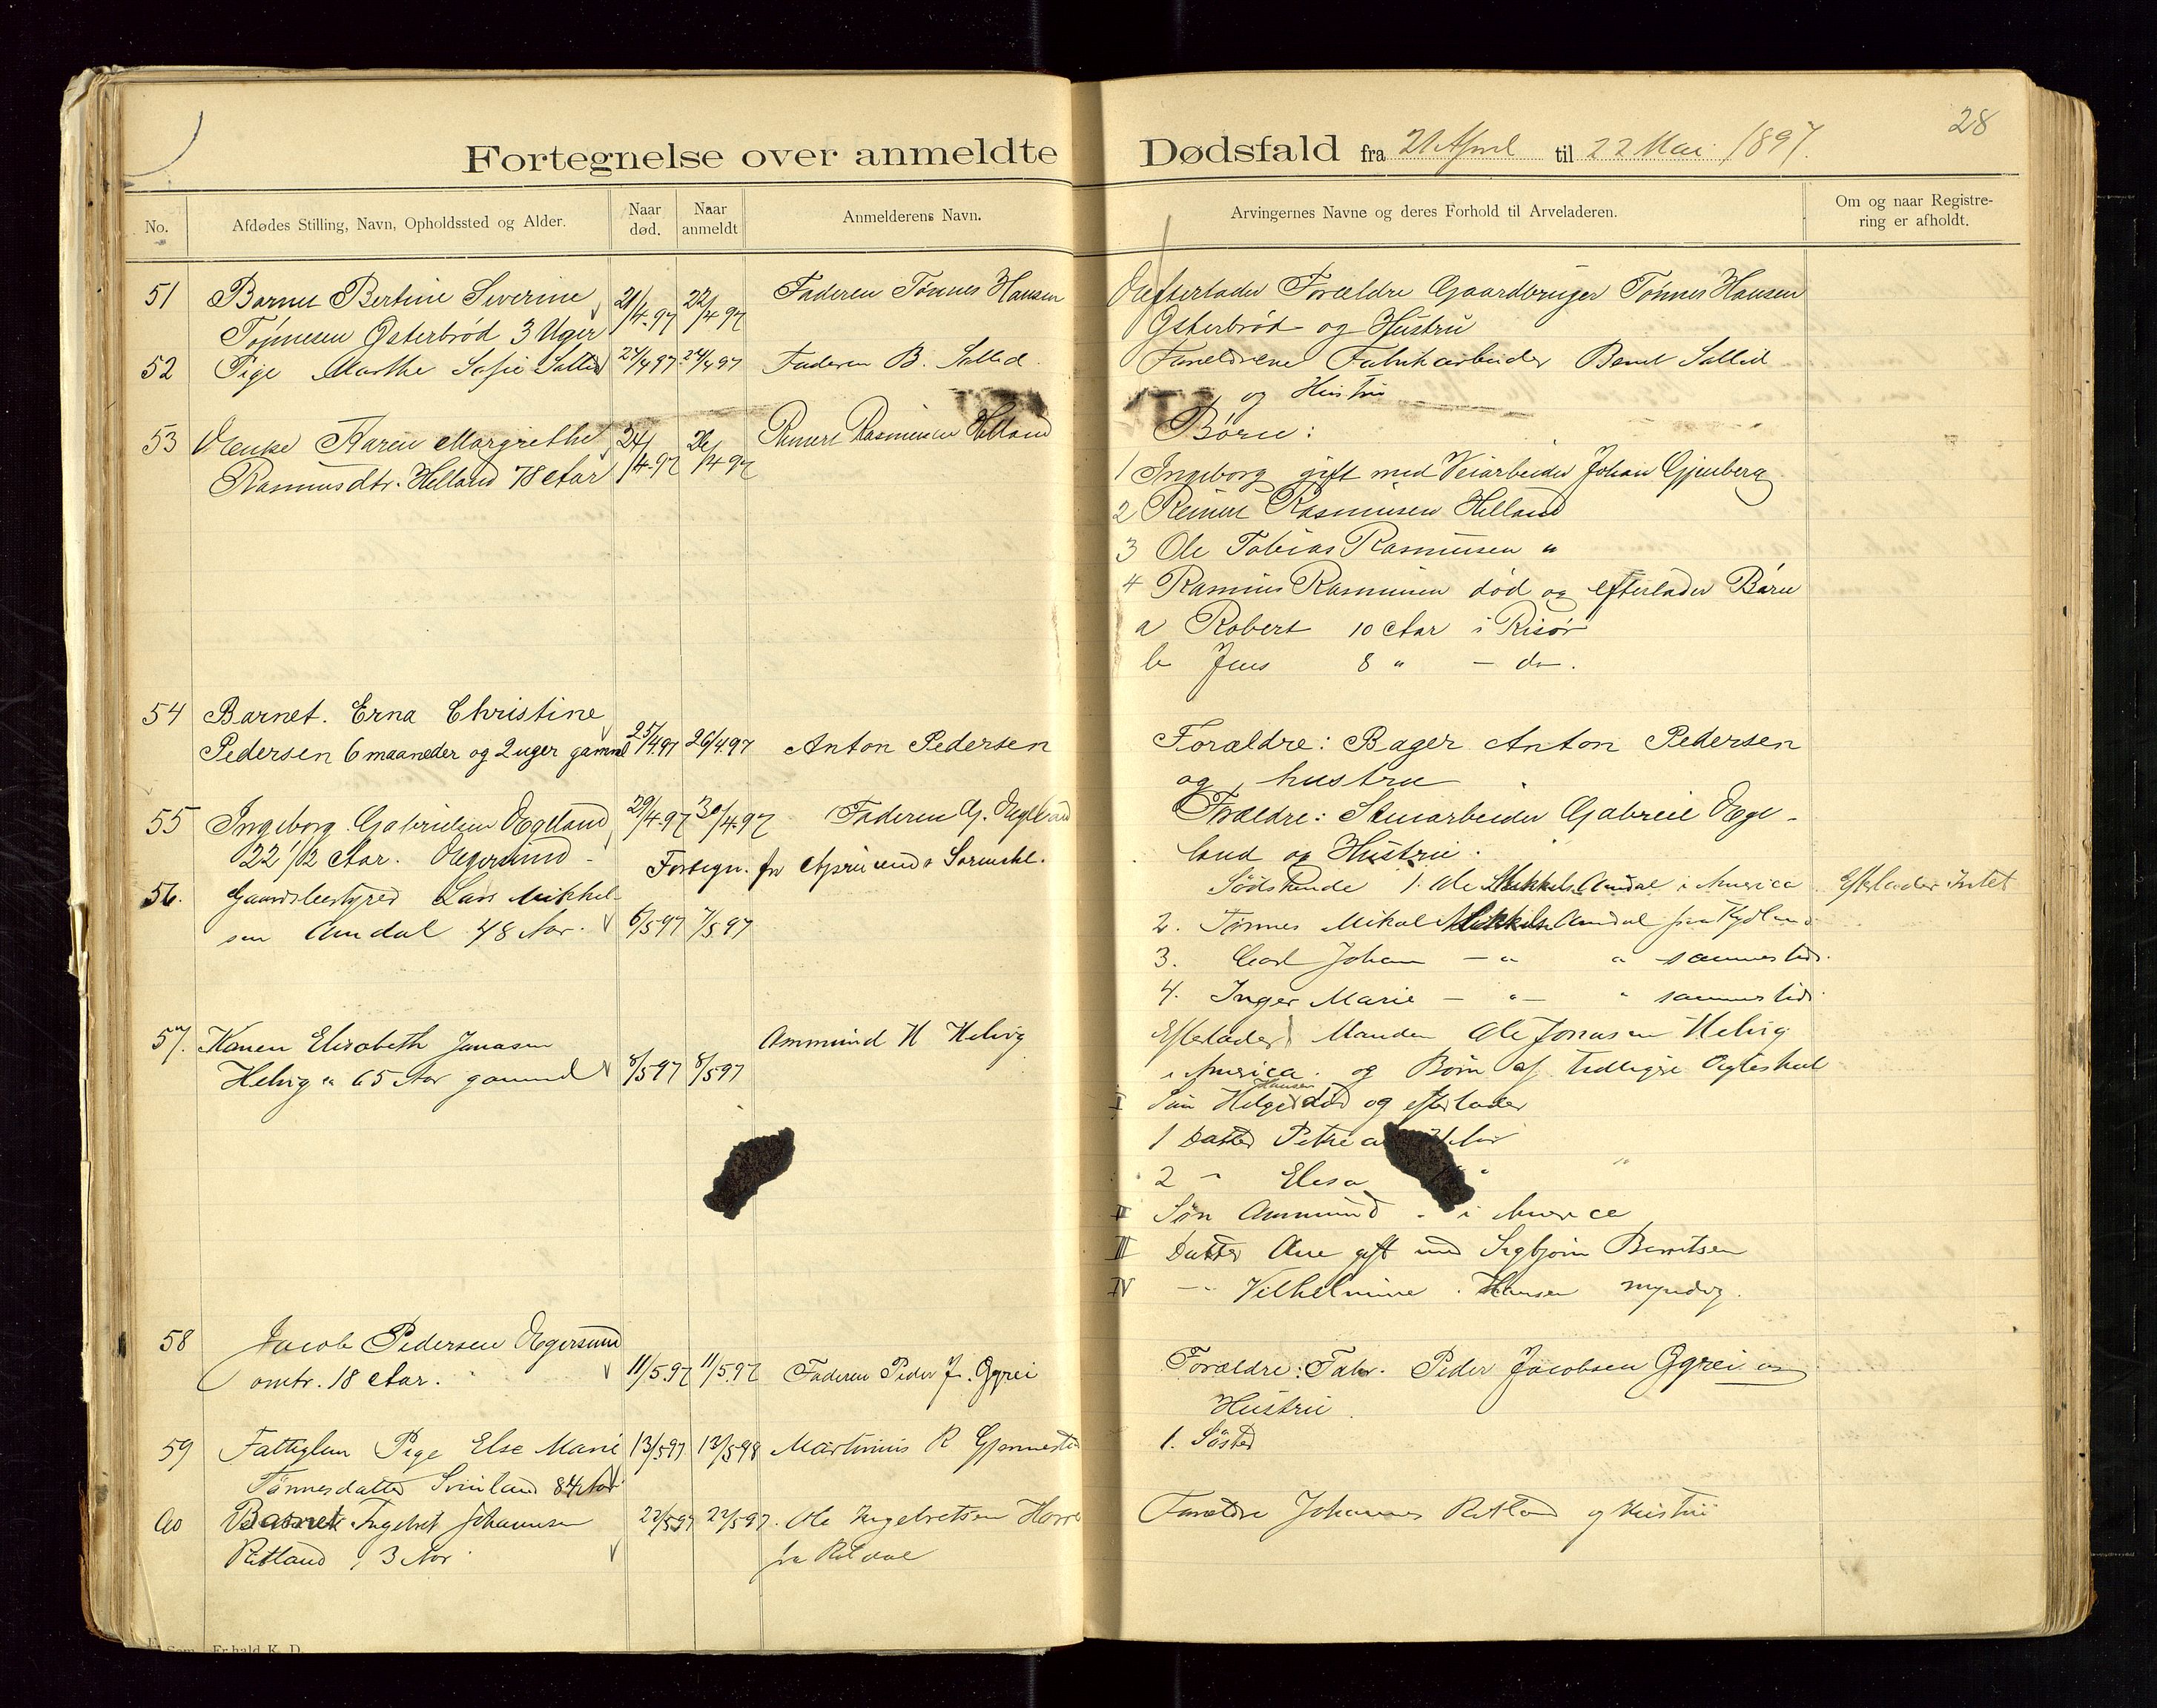 28
Fortegnelse over anmeldte Dødsfald fra 21 April til 22 Mai 1897.
No.
Afdødes Stilling, Navn, Opholdssted og Alder.
Naar død.
Naar anmeldt
Anmelderens Navn.
Arvingernes Navne og deres Forhold til Arveladeren.
Om og naar Registrering er afholdt.
51 Barnet Bertine Severine 21/4-97 22/4 97 Faderen Tønnes Hansen Efterlader Forældre Gaardbruger Tønnes Hansen
Tønnesen Østerbrød 3 Uger Østerbrød og Hustru
52 Pige Marthe Sofie 24/4 97 24/4 97 Faderen B. Forældrene Fabrikarbeider Bernt
og Hustru
53 Enke Karen Margrethe 24/4-97 26/4 97 Reinert Rasmussen Helland Børn:
Rasmusdtr. Helland 78 Aar
1 Ingeborg gift med Veiarbeider Johan Gjenberg
2 Reinert Rasmussen Helland
3 Ole Tobias Rasmussen "
4 Rasmus Rasmussen død og efterlader Børn
a Robert 10 Aar i Risør
b Jens 8 " - do.
54 Barnet. Erna Christine
Pedersen 6 maaneder og 2 uger gammel 25/4 97 26/4 97 Anton Pedersen Forældre: Bager Anton Pedersen
og hustru
55 Ingeborg Gabrielsen Ægeland 29/4-97 30/4-97 Faderen G. Forældre: Stenarbeider Gabriel Æge-
22 1/2 Aar. Egersund - land og Hustru.
Fortegn. for April
56. Gaardsbestyrer Lars Mikkel- Sødskende 1. Ole Mikkels. Amdal i America Efterlader Intet
sen Amdal 48 Aar. 6/5 97 7/5 97 2. Tønnes Mikal Mikkels. Amdal
3. Carl Johan - " " sammesteds.
4. Inger Marie - " - " sammesteds
57. Konen Elisabeth Jonasen Ammund H Helvig Efterlader Manden Ole Jonasen Helvig
Helvig 65 Aar gammel 8/5 97 8/5 97 i America. og Børn af tidligere Ægteskab
I Søn Helge Hansen død og efterlader
1 Datter Aar
2 " Elisa "
II Søn Ammund - i America
III Datter Ane gift med Sigbjørn Berntsen
IV - " Vilhelmine Hansen myndig.
58 Jacob Pedersen Egersund
omtr. 18 Aar. 11/5.97 11/5.97 Faderen Peder J. Egrei Forældre: Fabr. Peder Jacobsen Egrei og
Hustru.
59 Fattiglem Pige Else Marie 13/5 97 13/5 98 Martinius R 1. Søster
Tønnesdatter Svinland 84 Aar
60 Barnet Ingebret Johannesen 22/5 97 22/5 97 Ole Ingebretsen Forældre Johannes Rotland og Hustru
Rotland, 3 Aar